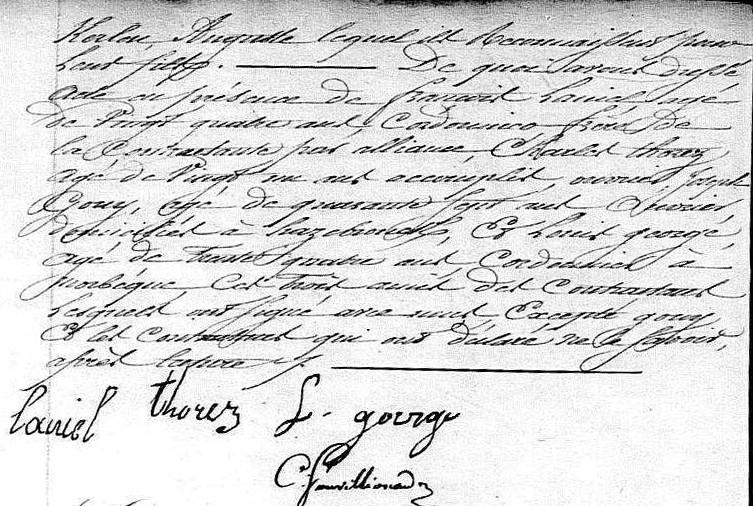 Auguste lequel ils reconnaissent pour
leur fils. De quoi avons dressé
acte en présence de françois Lauriel, agé
de vingt quatre ans, Cordonnier frère De
la Contractante par alliance, Charles thorez
agé de vingt un ans accomplis, ouvrier, joseph
Gouy, agé de quarante sept ans ouvrier,
domiciliés à hazebrouck, Et Louis george,
agé de trente quatre ans Cordonnier à
morbeque Ces trois amis des Contractans
lesquels ont signé avec nous, Excepté gouy,
Et les contractans qui ont déclaré ne le savoir,
après lecture
Lauriel thorez L. george